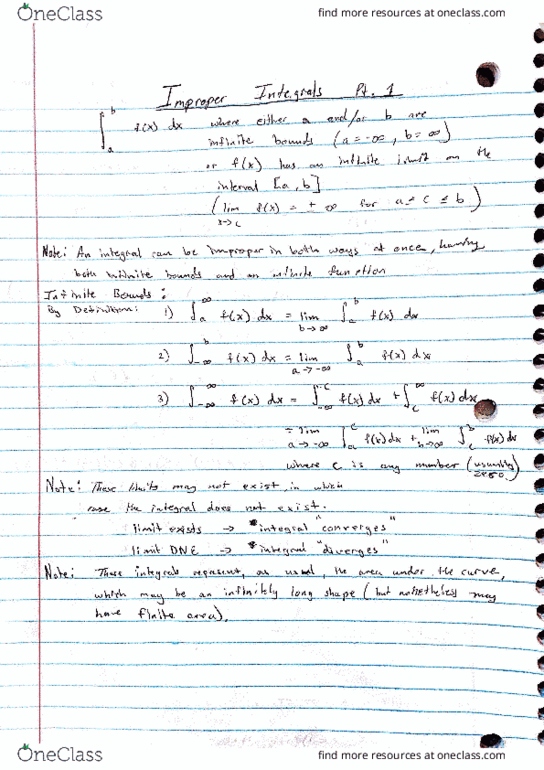 OneClass
find more resources at oneclass.com
Improper Integrals Pt. 1
∫_a^b f(x) dx where either a and/or b are
infinite bounds (a = -∞, b = ∞)
or f(x) has an infinite limit on the
interval [a, b]
(lim x→c f(x) = ± ∞ for a ≤ c ≤ b)
Note: An integral can be improper in both ways at once, having
both infinite bounds and an infinite function
Infinite Bounds:
By Definition: 1) ∫_a^∞ f(x) dx = lim b→∞ ∫_a^b f(x) dx
2) ∫_-∞^b f(x) dx = lim a→-∞ ∫_a^b f(x) dx
3) ∫_-∞^∞ f(x) dx = ∫_-∞^c f(x) dx + ∫_c^∞ f(x) dx
= lim a→-∞ ∫_a^c f(x) dx + lim b→∞ ∫_c^b f(x) dx
where c is any number (usually zero)
Note: These limits may not exist, in which
case the integral does not exist.
limit exists → *integral "converges"
limit DNE → *integral "diverges"
Note: These integrals represent, as usual, the area under the curve,
which may be an infinitely long shape (but nonetheless may
have finite area).
OneClass
find more resources at oneclass.com